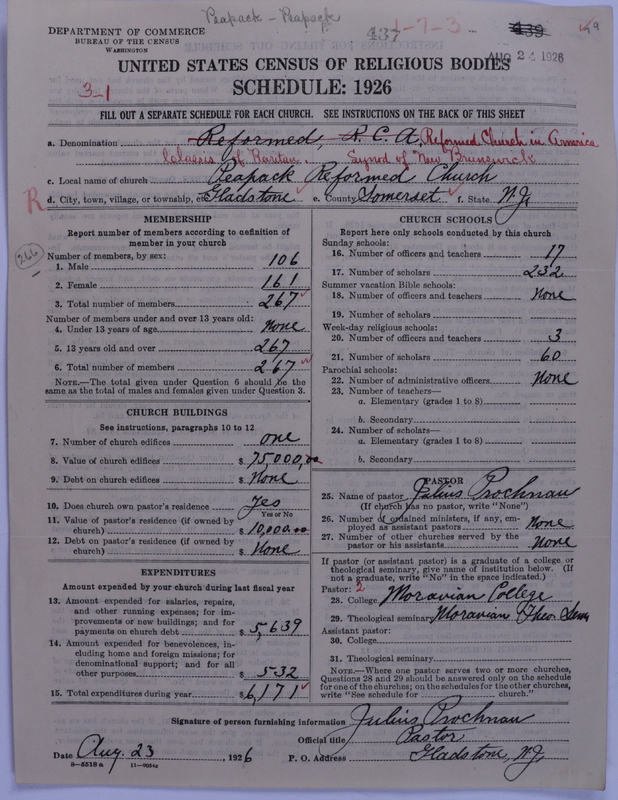 Peapack - Peapack
437 1-7-3 439
DEPARTMENT OF COMMERCE
BUREAU OF THE CENSUS
WASHINGTON
AUG 24 1926
UNITED STATES CENSUS OF RELIGIOUS BODIES
3-1
SCHEDULE: 1926
FILL OUT A SEPARATE SCHEDULE FOR EACH CHURCH. SEE INSTRUCTIONS ON THE BACK OF THIS SHEET
a. Denomination Reformed, R. C. A, Reformed Church in America
Classis of Raritan. Synod of New Brunswick
c. Local name of church Peapack Reformed Church
R d. City, town, village, or township, etc. Gladstone e. County Somerset f. State N.J.
MEMBERSHIP
Report number of members according to definition of
member in your church
266
Number of members, by sex:
1. Male 106
2. Female 161
3. Total number of members 267
Number of members under and over 13 years old:
4. Under 13 years of age None
5. 13 years old and over 267
6. Total number of members 267
NOTE.—The total given under Question 6 should be the
same as the total of males and females given under Question 3.
CHURCH BUILDINGS
See instructions, paragraphs 10 to 12
7. Number of church edifices one
8. Value of church edifices $ 75,000.00
9. Debt on church edifices $ None
10. Does church own pastor's residence Yes
Yes or No
11. Value of pastor's residence (if owned by
church) $ 10,000.00
12. Debt on pastor's residence (if owned by
church) $ None
EXPENDITURES
Amount expended by your church during last fiscal year
13. Amount expended for salaries, repairs,
and other running expenses; for im-
provements or new buildings; and for
payments on church debt $ 5,639
14. Amount expended for benevolences, in-
cluding home and foreign missions; for
denominational support; and for all
other purposes $ 532
15. Total expenditures during year $ 6,171
CHURCH SCHOOLS
Report here only schools conducted by this church
Sunday schools:
16. Number of officers and teachers 17
17. Number of scholars 232
Summer vacation Bible schools:
18. Number of officers and teachers None
19. Number of scholars
Week-day religious schools:
20. Number of officers and teachers 3
21. Number of scholars 60
Parochial schools:
22. Number of administrative officers None
23. Number of teachers—
a. Elementary (grades 1 to 8)
b. Secondary
24. Number of scholars—
a. Elementary (grades 1 to 8)
b. Secondary
PASTOR
25. Name of pastor Julius Prochnau
(If church has no pastor, write "None")
26. Number of ordained ministers, if any, em-
ployed as assistant pastors None
27. Number of other churches served by the
pastor or his assistants None
If pastor (or assistant pastor) is a graduate of a college or
theological seminary, give name of institution below. (If
not a graduate, write "No" in the space indicated.)
Pastor: 2
28. College Moravian College
29. Theological seminary Moravian Theo. Sem
Assistant pastor:
30. College
31. Theological seminary
NOTE.—Where one pastor serves two or more churches,
Questions 28 and 29 should be answered only on the schedule
for one of the churches; on the schedules for the other churches,
write "See schedule for church."
Signature of person furnishing information Julius Prochnau
Official title Pastor
Date Aug. 23, 1926 P. O. Address Gladstone, N.J.
8-5518 a